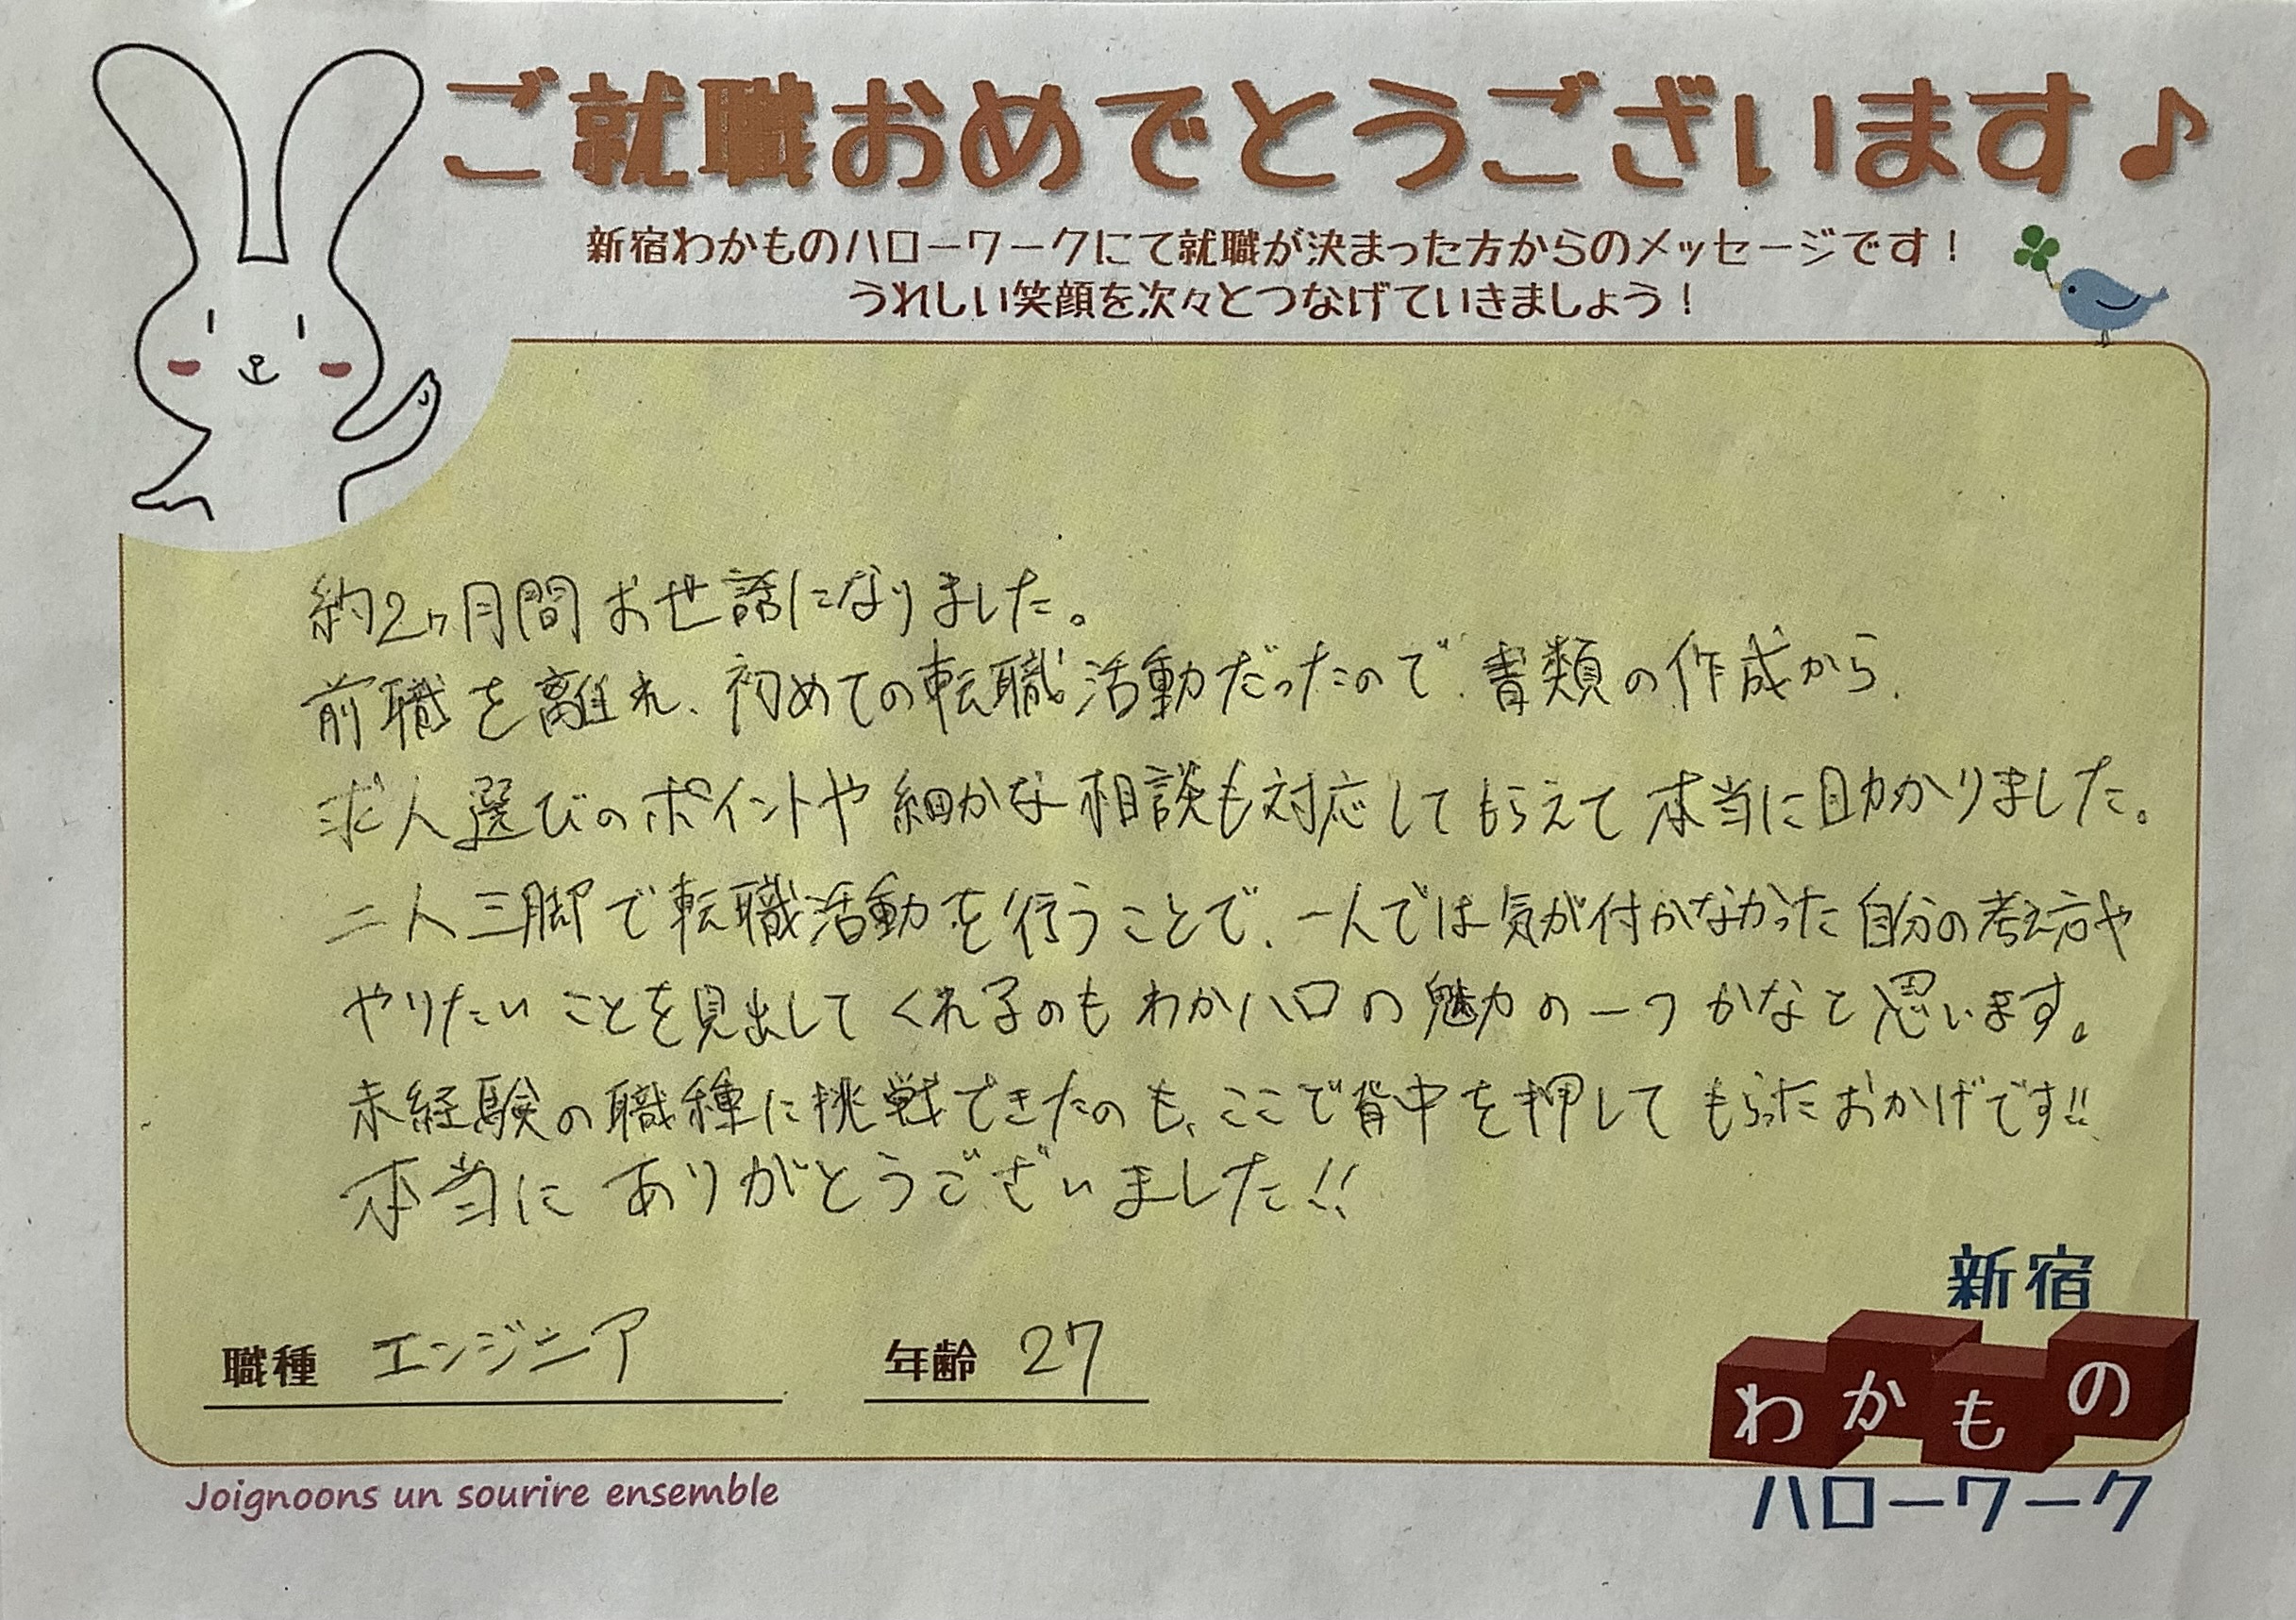 ご就職おめでとうございます♪
新宿わかものハローワークにて就職が決まった方からのメッセージです！
うれしい笑顔を次々とつなげていきましょう！
約2ヶ月間お世話になりました。
前職を離れ、初めての転職活動だったので、書類の作成から、
求人選びのポイントや細かな相談も対応してもらえて本当に助かりました。
二人三脚で転職活動を行うことで、一人では気が付かなかった自分の考え方や
やりたいことを見出してくれるのもわかハロの魅力の一つかなと思います。
未経験の職種に挑戦できたのも、ここで背中を押してもらったおかげです!!
本当にありがとうございました!!
職種 エンジニア 年齢 27
新宿
わかもの
ハローワーク
Joignoons un sourire ensemble